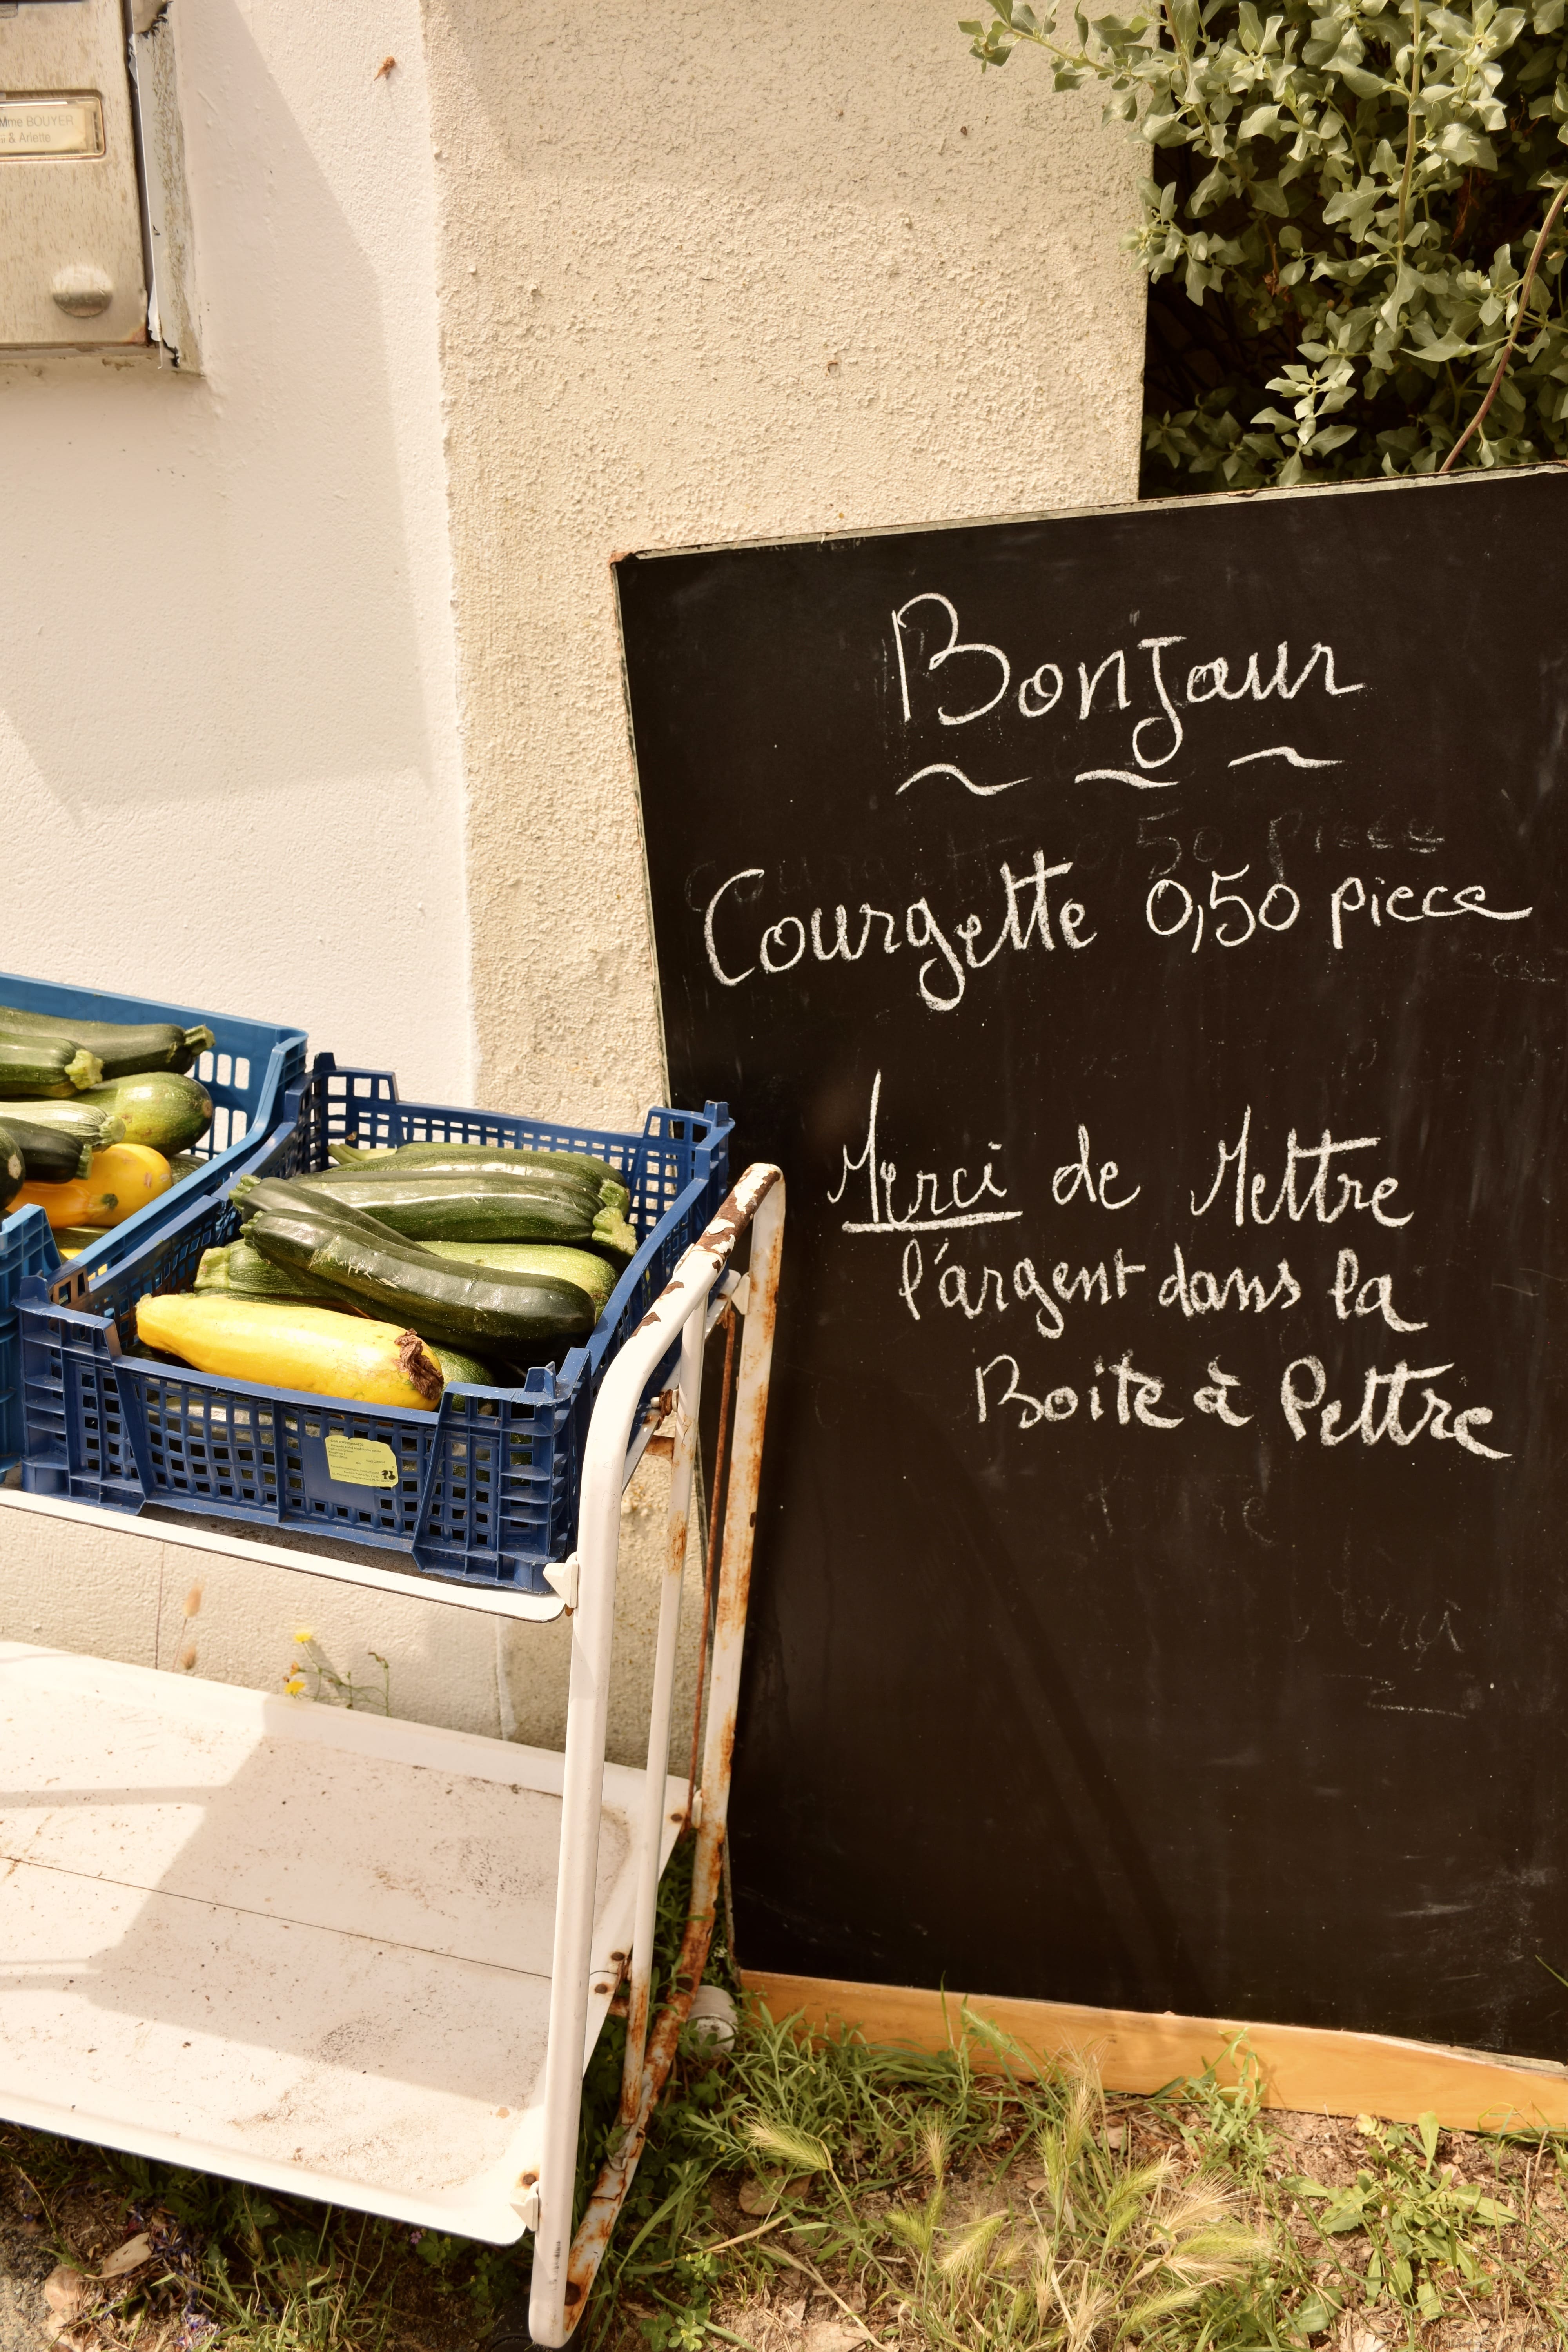 Mme BOUYER
& Arlette
Bonjour
0,50 piece
Courgette 0,50 piece
Merci de Mettre
l'argent dans la
Boite à Lettre